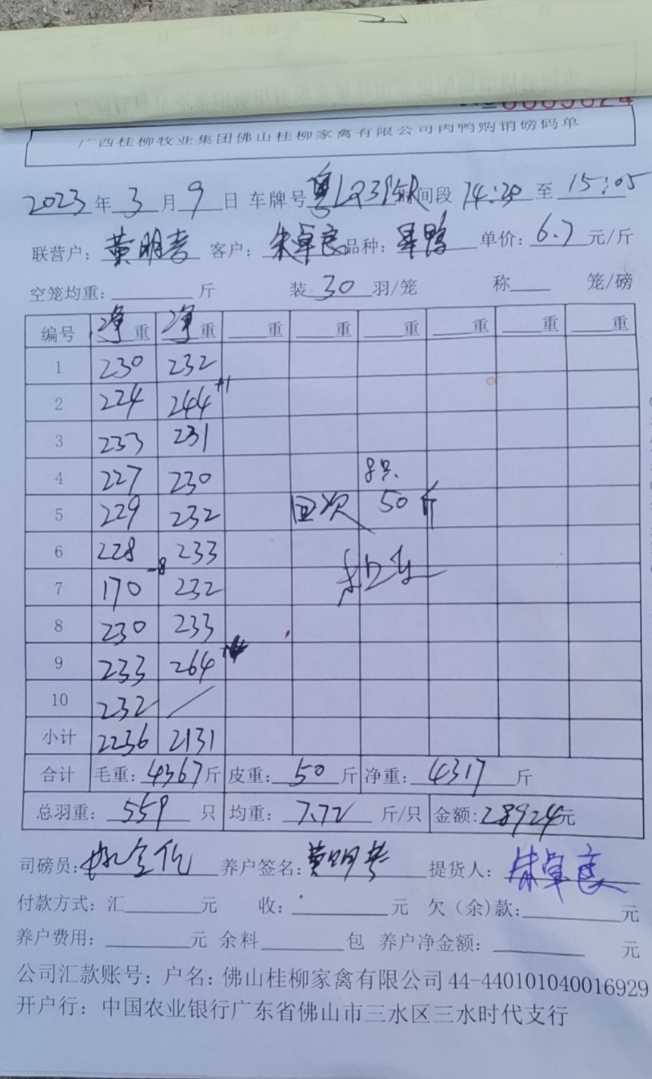 广西桂柳牧业集团佛山桂柳家禽有限公司肉鸭购销磅码单
2023年3月9日 车牌号 时间段 14:20至15:05
联营户:黄明 客户:朱卓良 品种: 鸭 单价:6.7元/斤
空笼均重: 斤 装30羽/笼 称 笼/磅
编号 净重 净重 重 重 重 重 重 重
1 230 232
2 224 244 +1
3 233 231
4 227 230 8只
5 229 232 回次 50斤
6 228 233
7 170 -8 232
8 230 233
9 233 264
10 232 /
小计 2236 2131
合计 毛重:4367斤 皮重:50斤 净重:4317斤
总羽重:559只 均重:7.72斤/只 金额:28924元
司磅员: 养户签名:黄明 提货人:朱卓良
付款方式:汇 元 收: 元 欠(余)款: 元
养户费用: 元 余料 包 养户净金额: 元
公司汇款账号:户名:佛山桂柳家禽有限公司 44-440101040016929
开户行:中国农业银行广东省佛山市三水区三水时代支行